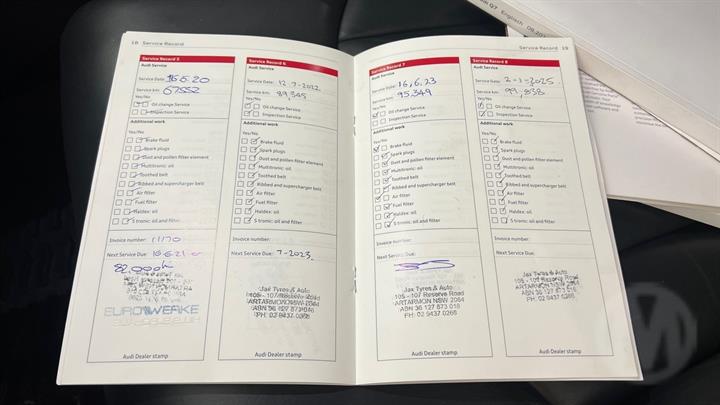 18 Service Record
Service Record 5
Audi Service
Service Date: 16.6.20
Service km: 67552
Yes/No
Oil change Service
Inspection Service
Additional work
Yes/No
Brake fluid
Spark plugs
Dust and pollen filter element
Multitronic: oil
Toothed belt
Ribbed and supercharger belt
Air filter
Fuel filter
Haldex: oil
S tronic: oil and filter
Invoice number: 11170
Next Service Due: 16.6.21 or
82,000km
EUROWERKE
Audi Dealer stamp
Service Record 6
Audi Service
Service Date: 12.7-2022.
Service km: 89,345
Yes/No
Oil change Service
Inspection Service
Additional work
Yes/No
Brake fluid
Spark plugs
Dust and pollen filter element
Multitronic: oil
Toothed belt
Ribbed and supercharger belt
Air filter
Fuel filter
Haldex: oil
S tronic: oil and filter
Invoice number:
Next Service Due: 7-2023.
Jax Tyres & Auto
105 - 107 Reserve Road
ARTARMON NSW 2064
ABN 36 127 873 018
PH: 02 9437 0266
Audi Dealer stamp
Service Record 19
Service Record 7
Audi Service
Service Date: 16,6,23
Service km: 95,349
Yes/No
Oil change Service
Inspection Service
Additional work
Yes/No
Brake fluid
Spark plugs
Dust and pollen filter element
Multitronic: oil
Toothed belt
Ribbed and supercharger belt
Air filter
Fuel filter
Haldex: oil
S tronic: oil and filter
Invoice number:
Next Service Due:
Jax Tyres & Auto
105 - 107 Reserve Road
ARTARMON NSW 2064
ABN 36 127 873 018
PH: 02 9437 0266
Audi Dealer stamp
Service Record 8
Audi Service
Service Date: 2-1-2025
Service km: 99,838
Yes/No
Oil change Service
Inspection Service
Additional work
Yes/No
Brake fluid
Spark plugs
Dust and pollen filter element
Multitronic: oil
Toothed belt
Ribbed and supercharger belt
Air filter
Fuel filter
Haldex: oil
S tronic: oil and filter
Invoice number:
Next Service Due:
Jax Tyres & Auto
105 - 107 Reserve Road
ARTARMON NSW 2064
ABN 36 127 873 018
PH: 02 9437 0266
Audi Dealer stamp
Q7 Englisch